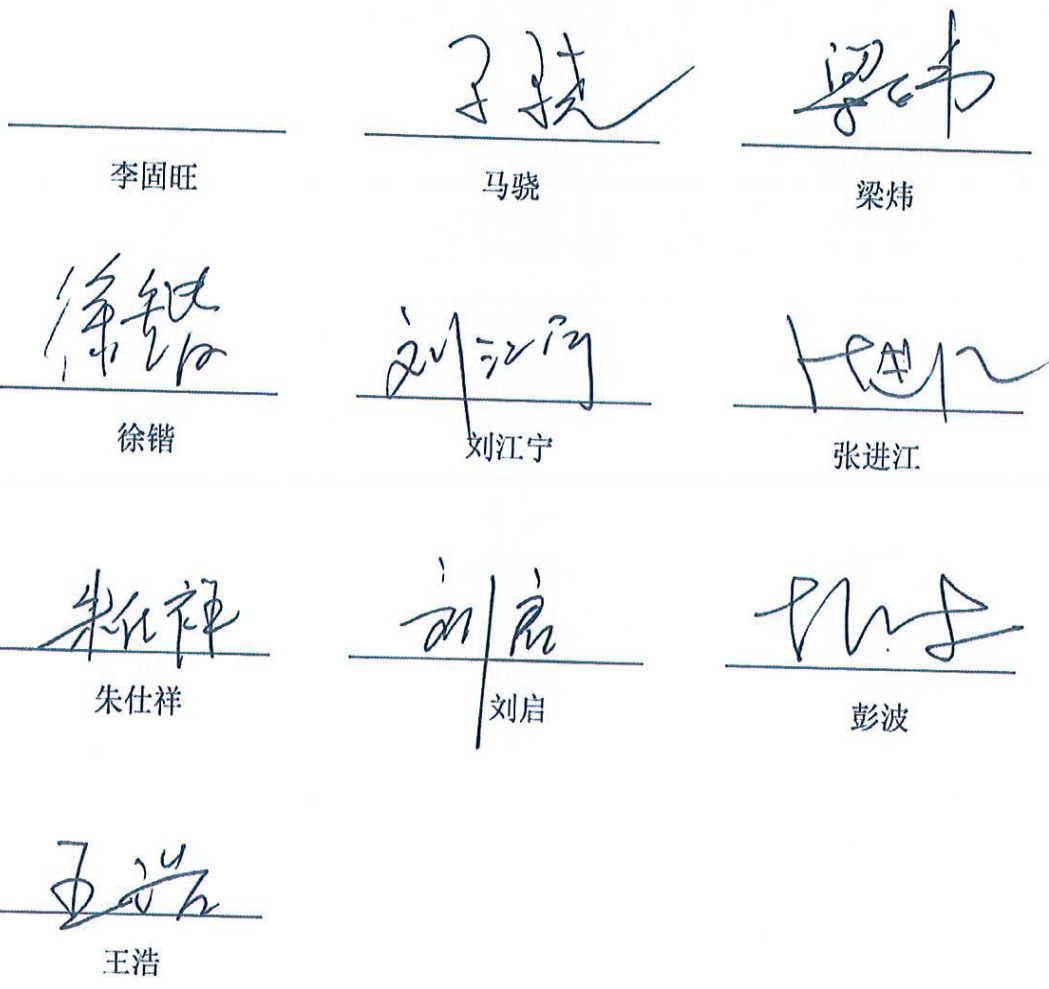 马骁 梁炜
李固旺 马骁 梁炜
徐锴 刘江宁 张进江
徐锴 刘江宁 张进江
朱仕祥 刘启
朱仕祥 刘启 彭波
王浩
王浩